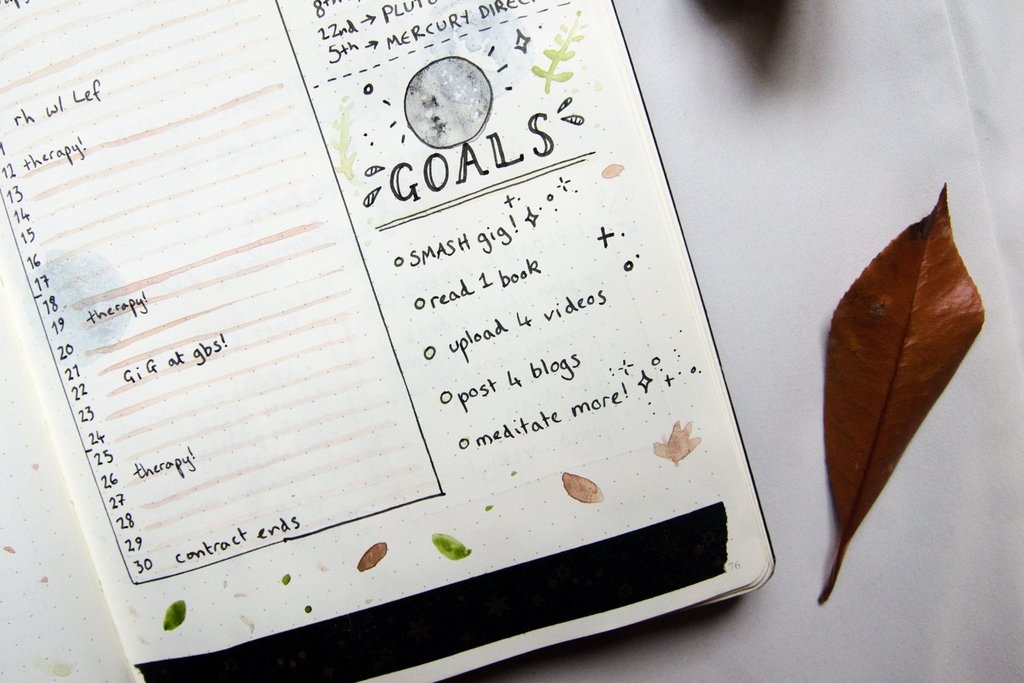 rh w/ Lef
12 therapy!
13
14
15
16
17
18
19 therapy!
20
21
22 GiG at gbs!
23
24
25
26 therapy!
27
28
29
30 contract ends
8th
22nd → PLUTO
5th → MERCURY DIRECT
GOALS
SMASH gig!
read 1 book
upload 4 videos
post 4 blogs
meditate more!
76